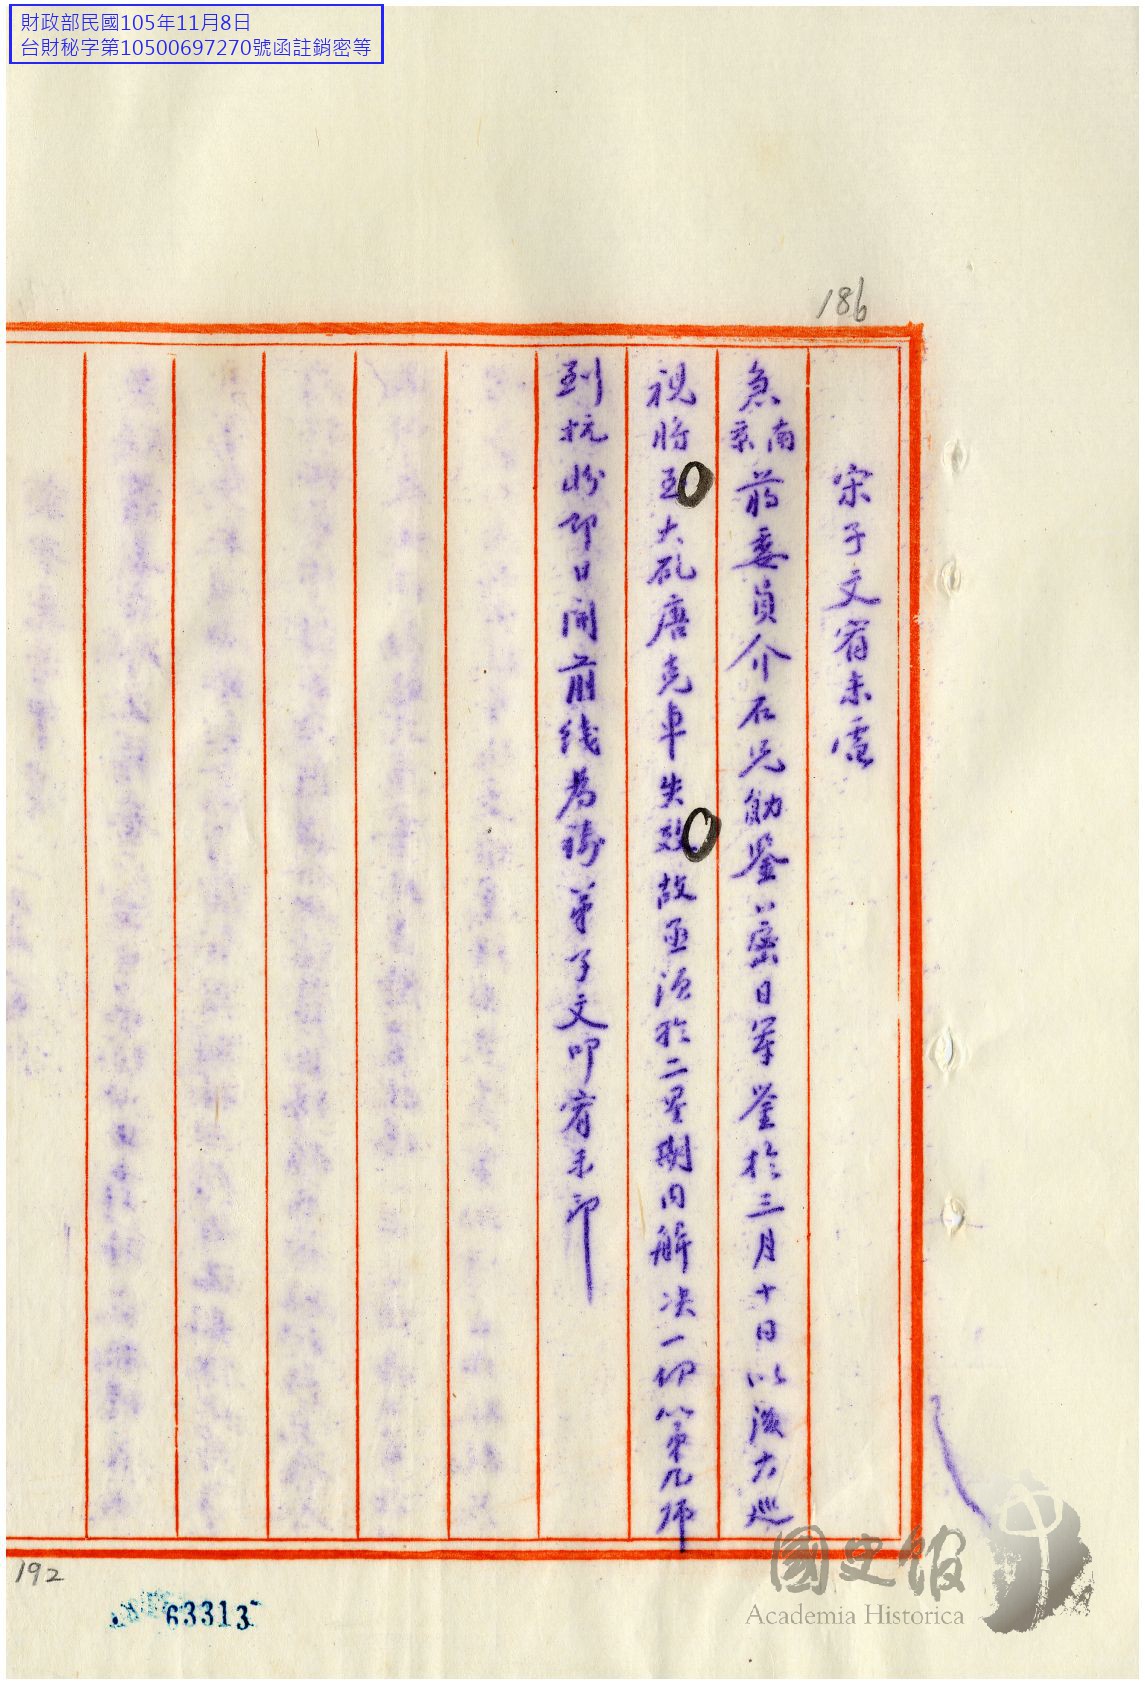 財政部民國105年11月8日
台財秘字第10500697270號函註銷密等
186
宋子文宥未電
急南京蔣委員介石兄勛鑒密日軍鑒於三月十日以後大巡
視將至大砲唐克車失效故亟須於二星期内解決一切第九師
到杭盼即日開前线為禱弟子文叩宥未印
192
63313
國史館
Academia Historica